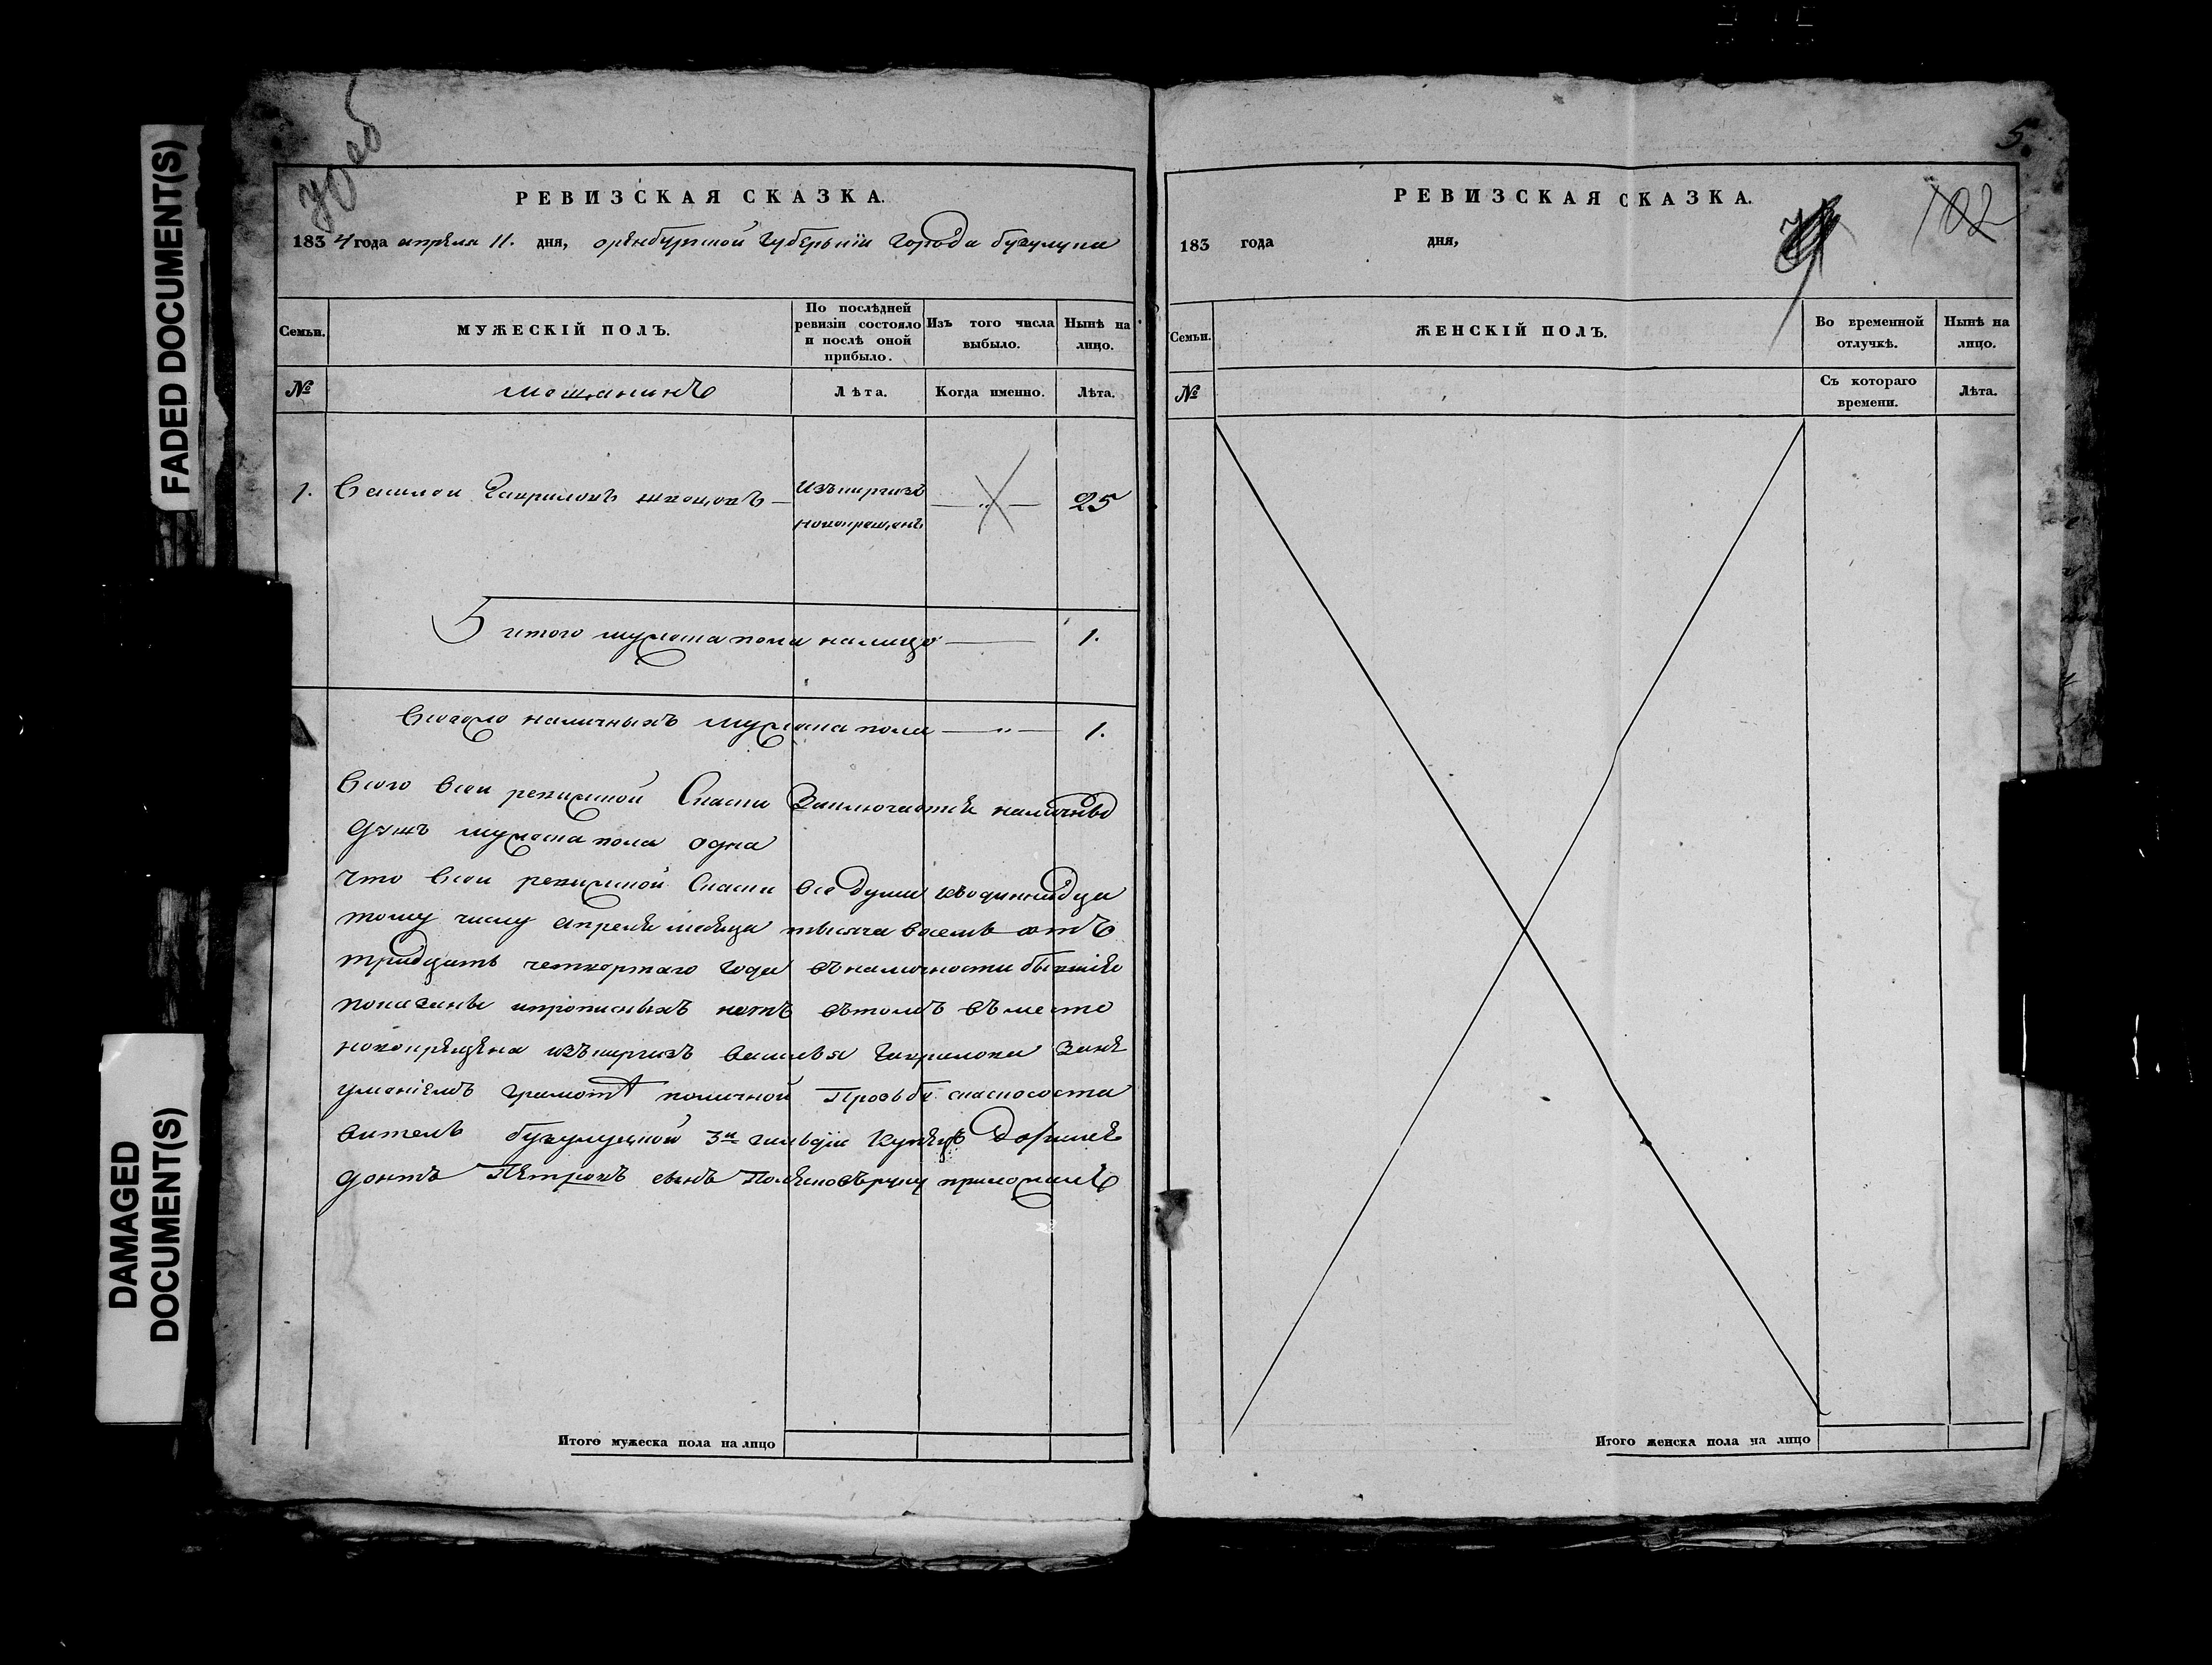 FADED DOCUMENT(S)
DAMAGED
DOCUMENT(S)
РЕВИЗСКАЯ СКАЗКА.
1834 года апреля 11. дня, оренбургской Губернiи города бузулука
Семьи.
МУЖЕСКIЙ ПОЛЪ.
По послѣдней ревизiи состояло и послѣ оной прибыло.
Изъ того числа выбыло.
Нынѣ на лицо.
№
мещанинъ
Лѣта.
Когда именно.
Лѣта.
1. Василеи Гавриловъ
изъкиргизъ
новокрещенъ
25
итого мужеска пола налицо 1.
Всего наличныхъ мужеска пола 1.
Всего всеи ревижской Скаски Заключается налично
душъ мужеска пола одна
что всеи ревижской Скаски все души къодиннадца
тому числу апреля месяца тысяча восемь сотъ
тридцать четвертаго года въналичности бывшiе
показаны ипрописныхъ нетъ вътомъ въместо
новокрещена изъкиргизъ василья Гаврилова Зане
уменiемъ Грамотѣ поличной Прозьбе скаскососта
витель бузулуцкой 3й гильдiи Купецъ
Петровъ сынъ руку приложилъ
Итого мужеска пола на лицо
5.
РЕВИЗСКАЯ СКАЗКА.
102
183 года дня,
Семьи.
ЖЕНСКIЙ ПОЛЪ.
Во временной отлучкѣ.
Нынѣ на лицо.
№
Съ котораго времени.
Лѣта.
Итого женска пола на лицо